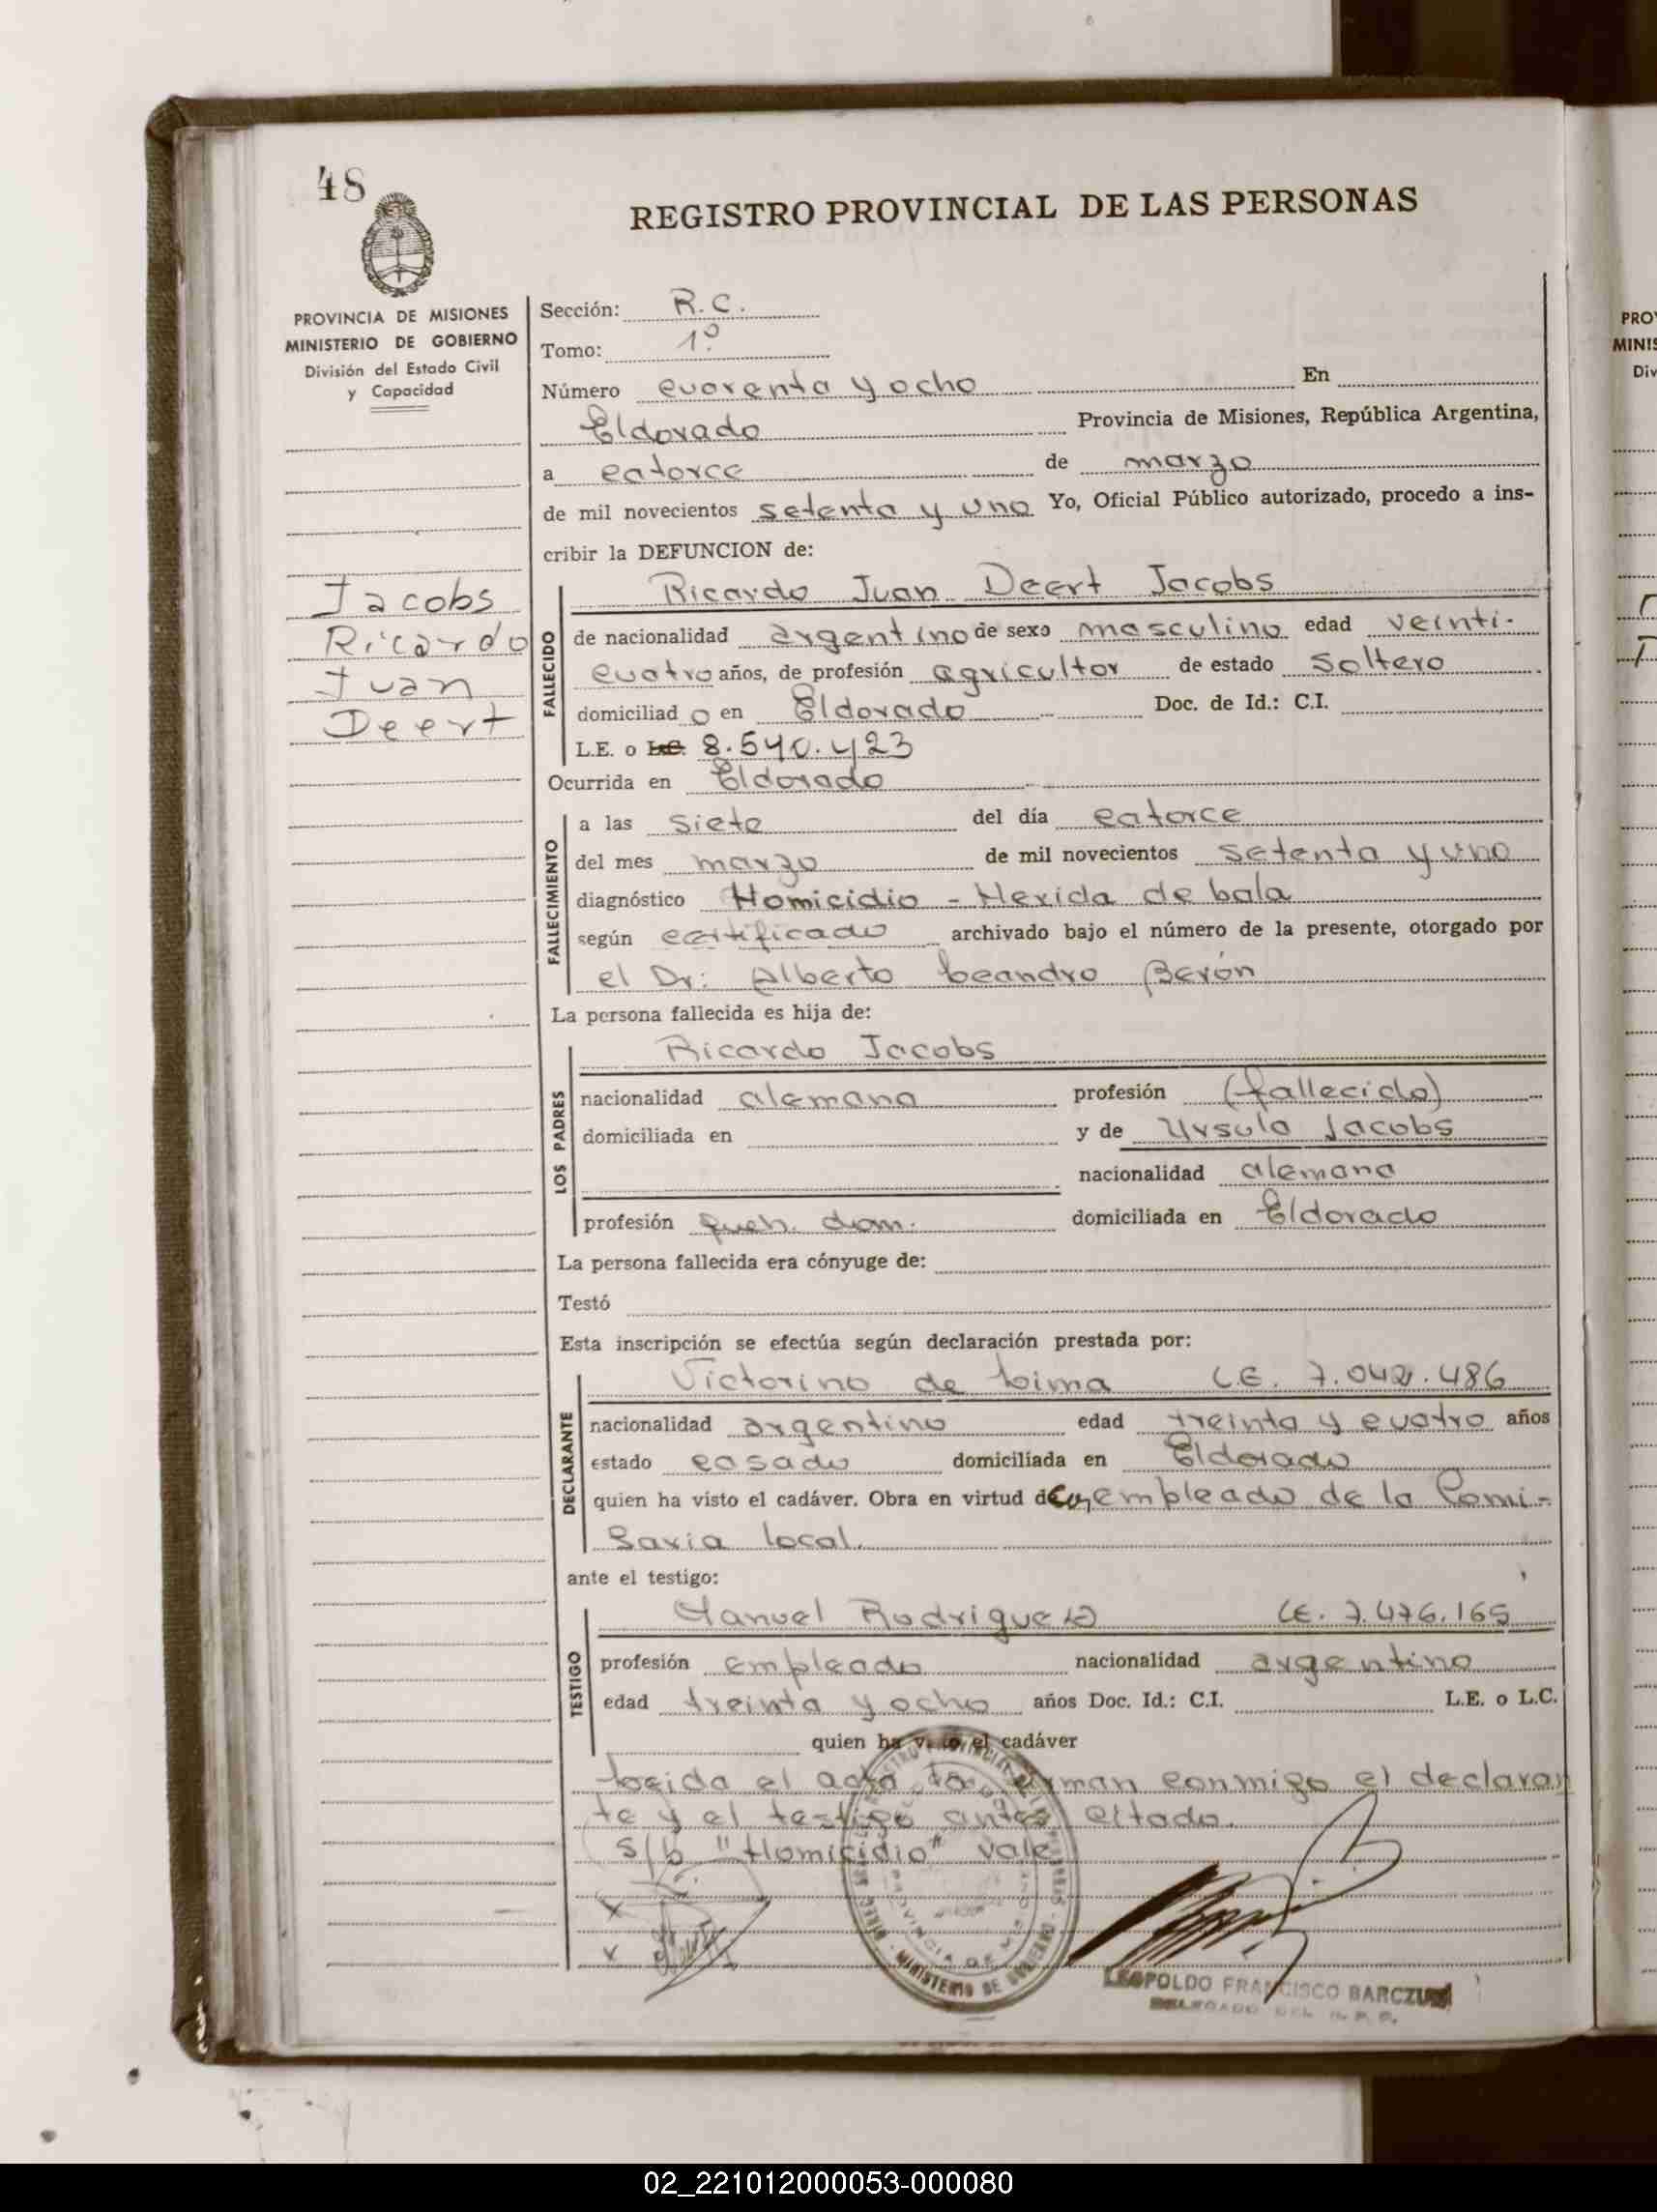 48
REGISTRO PROVINCIAL DE LAS PERSONAS
PROVINCIA DE MISIONES
MINISTERIO DE GOBIERNO
División del Estado Civil
y Capacidad
Sección: R.C.
Tomo: 1º
Número cuarenta y ocho En
Eldorado Provincia de Misiones, República Argentina,
a catorce de marzo
de mil novecientos setenta y uno Yo, Oficial Público autorizado, procedo a ins-
cribir la DEFUNCION de:
Jacobs
Ricardo
Juan
Deert
FALLECIDO
Ricardo Juan Deert Jacobs
de nacionalidad argentino de sexo masculino edad veinti-
cuatro años, de profesión agricultor de estado soltero
domiciliado en Eldorado Doc. de Id.: C.I.
L.E. o L.C. 8.540.423
Ocurrida en Eldorado
FALLECIMIENTO
a las siete del día catorce
del mes marzo de mil novecientos setenta y uno
diagnóstico Homicidio - Herida de bala
según certificado archivado bajo el número de la presente, otorgado por
el Dr: Alberto Leandro Berón
La persona fallecida es hija de:
LOS PADRES
Ricardo Jacobs
nacionalidad alemana profesión (fallecido)
domiciliada en y de Ursula Jacobs
nacionalidad alemana
profesión queh. dom. domiciliada en Eldorado
La persona fallecida era cónyuge de:
Testó
Esta inscripción se efectúa según declaración prestada por:
DECLARANTE
Victorino de Lima L.E. 7.042.486
nacionalidad argentino edad treinta y cuatro años
estado casado domiciliada en Eldorado
quien ha visto el cadáver. Obra en virtud de empleado de la Comi-
saria local.
ante el testigo:
TESTIGO
Manuel Rodriguez L.E. 7.476.165
profesión empleado nacionalidad argentino
edad treinta y ocho años Doc. Id.: C.I. L.E. o L.C.
quien ha visto el cadáver
Leida el acta la firman conmigo el declaran
te y el testigo antes citado.
s/b "Homicidio" vale
x
x
MINISTERIO DE GOBIERNO
PROVINCIA DE
LEOPOLDO FRANCISCO
DELEGADO DEL R. P. P.
PRO
MINIS
Div
02_221012000053-000080